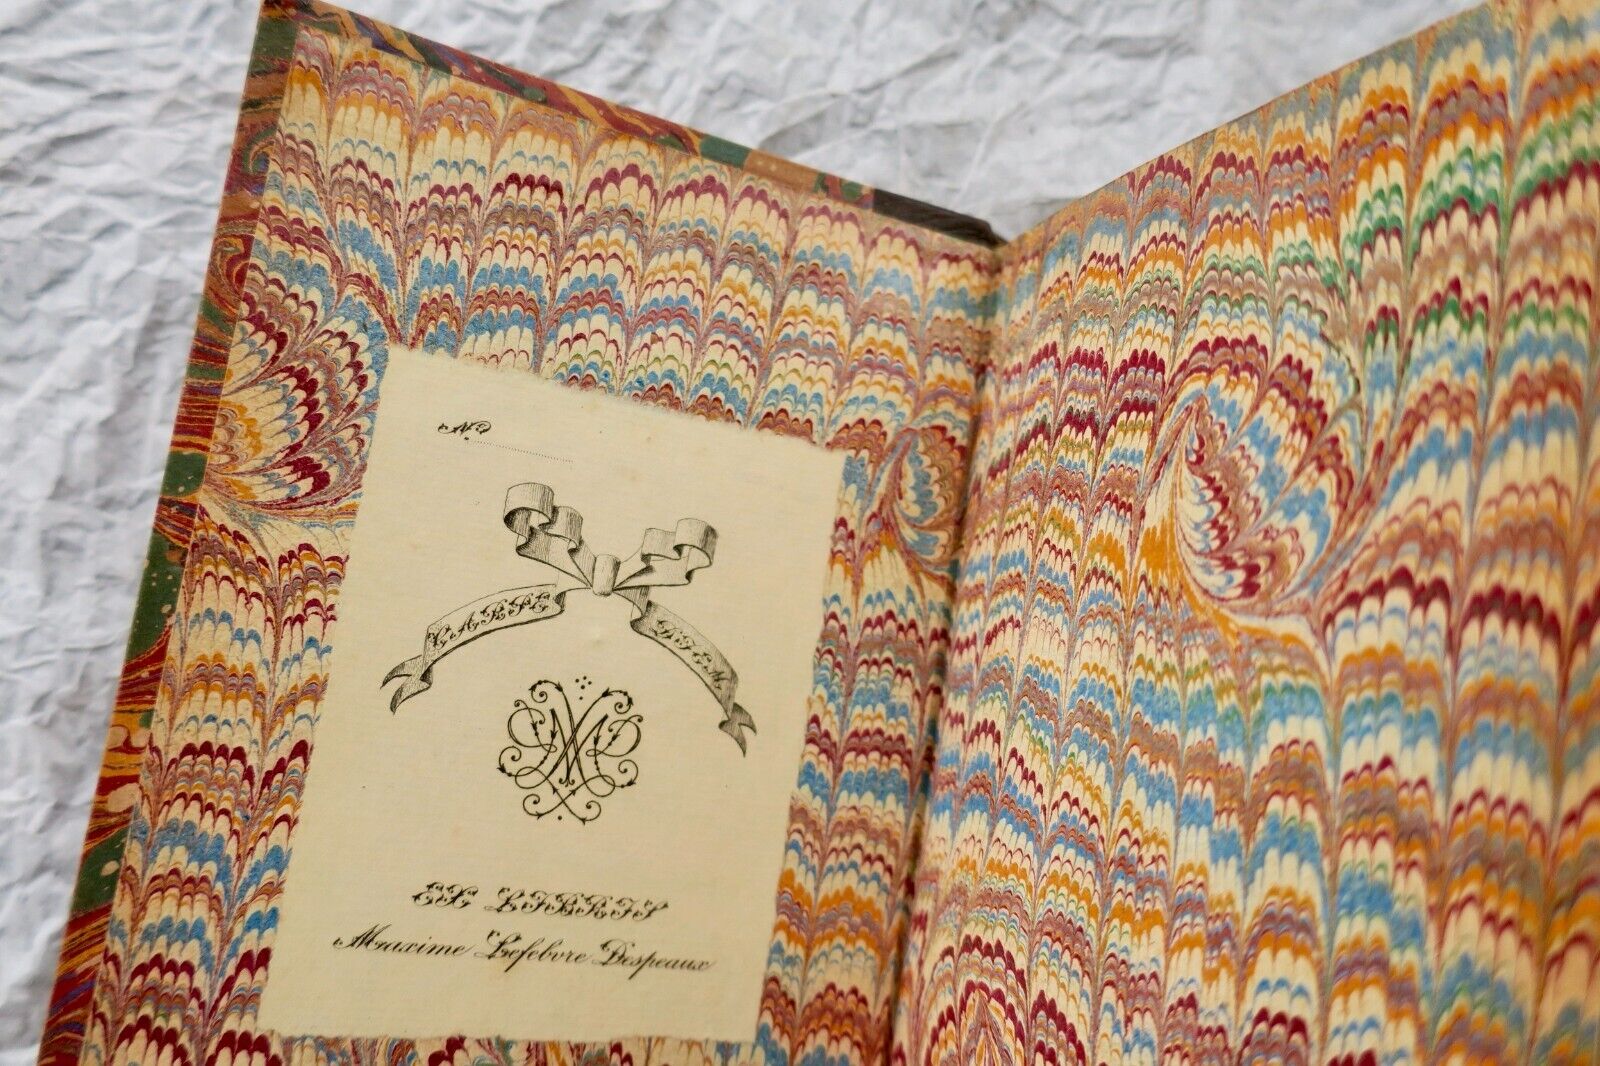 N.º
CARPE DIEM
EX LIBRIS
Maxime Lefebvre Despeaux